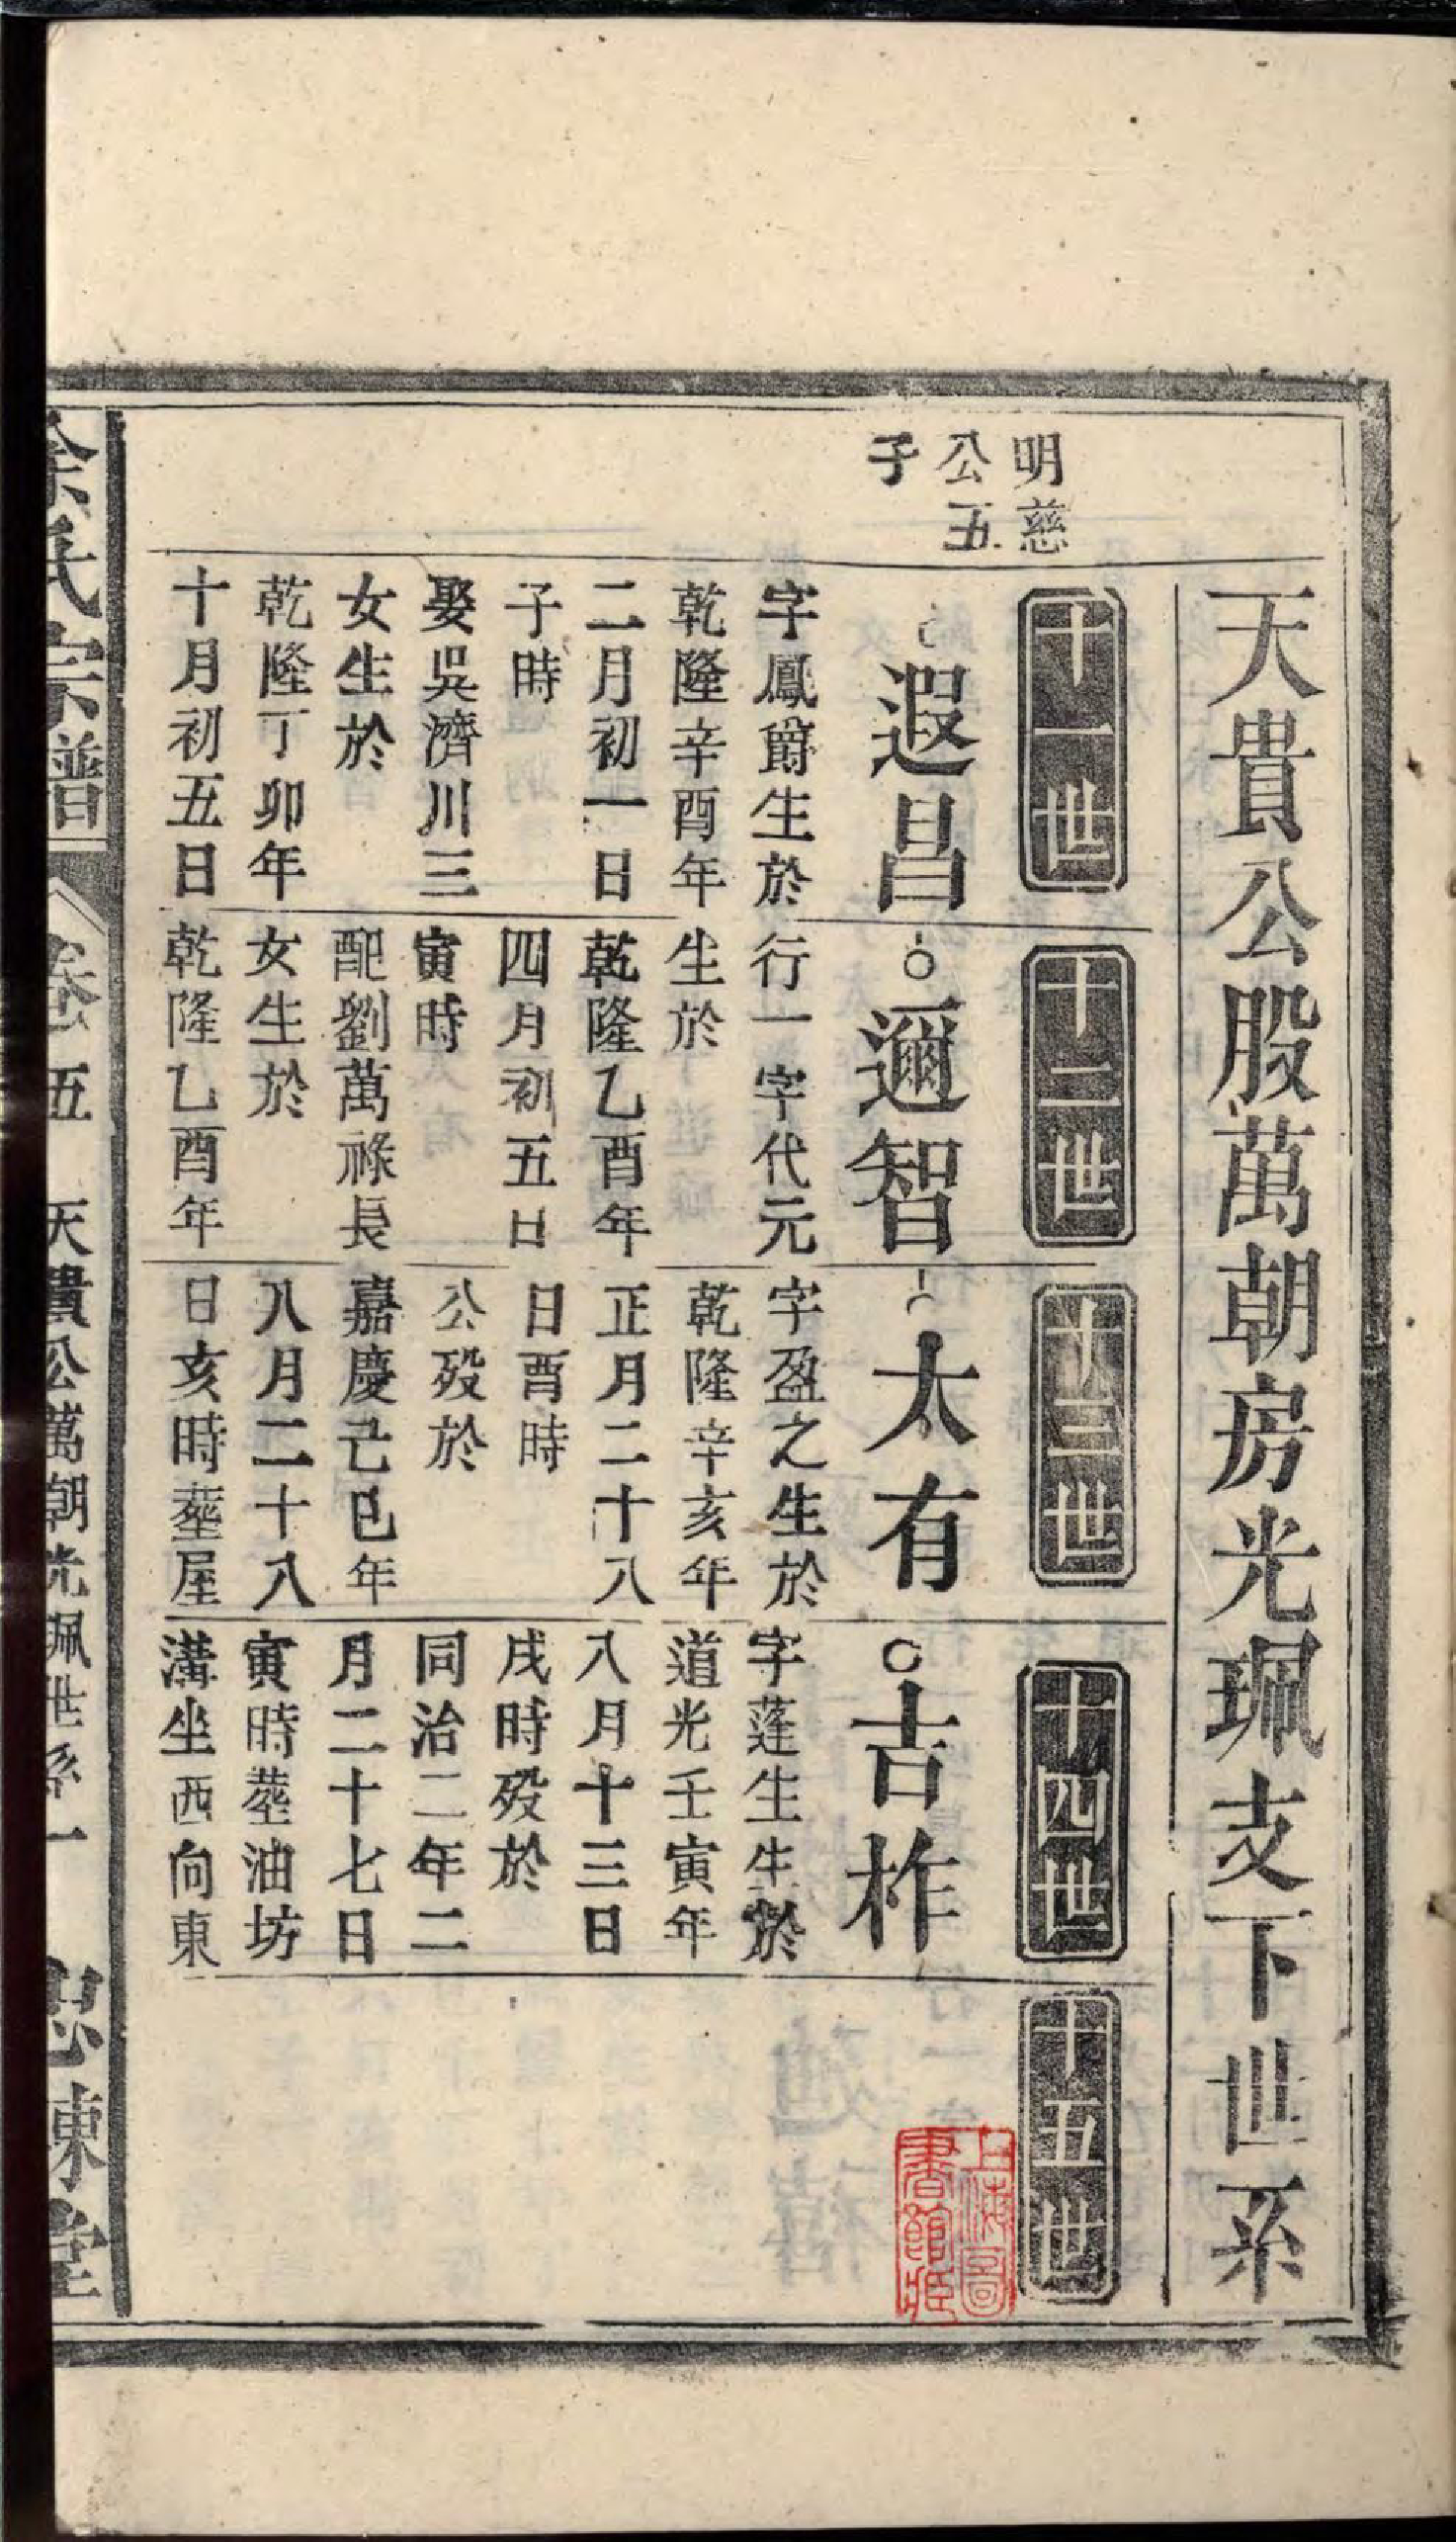 天貴公股萬朝房光珮支下世系
十一世
十二世
十三世
十四世
十五世
明慈
公五
子
遐昌
字鳳爵生於
乾隆辛酉年
二月初一日
子時
娶吳濟川三
女生於
乾隆丁卯年
十月初五日
邇智
行一字代元
生於
乾隆乙酉年
四月初五日
寅時
配劉萬祿長
女生於
乾隆乙酉年
太有
字盈之生於
乾隆辛亥年
正月二十八
日酉時
公殁於
嘉慶己巳年
八月二十八
日亥時塟屋
吉柞
字蓬生生於
道光壬寅年
八月十三日
戌時殁於
同治二年二
月二十七日
寅時塟油坊
溝坐西向東
上海圖
書館藏
氏宗譜 卷五 天貴公萬朝光珮世系 一